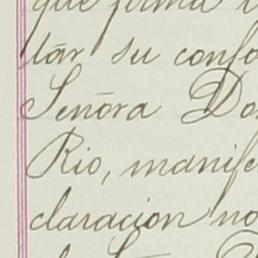 que firma
tar su confo
Señora Do
Rio, manife
claracion no